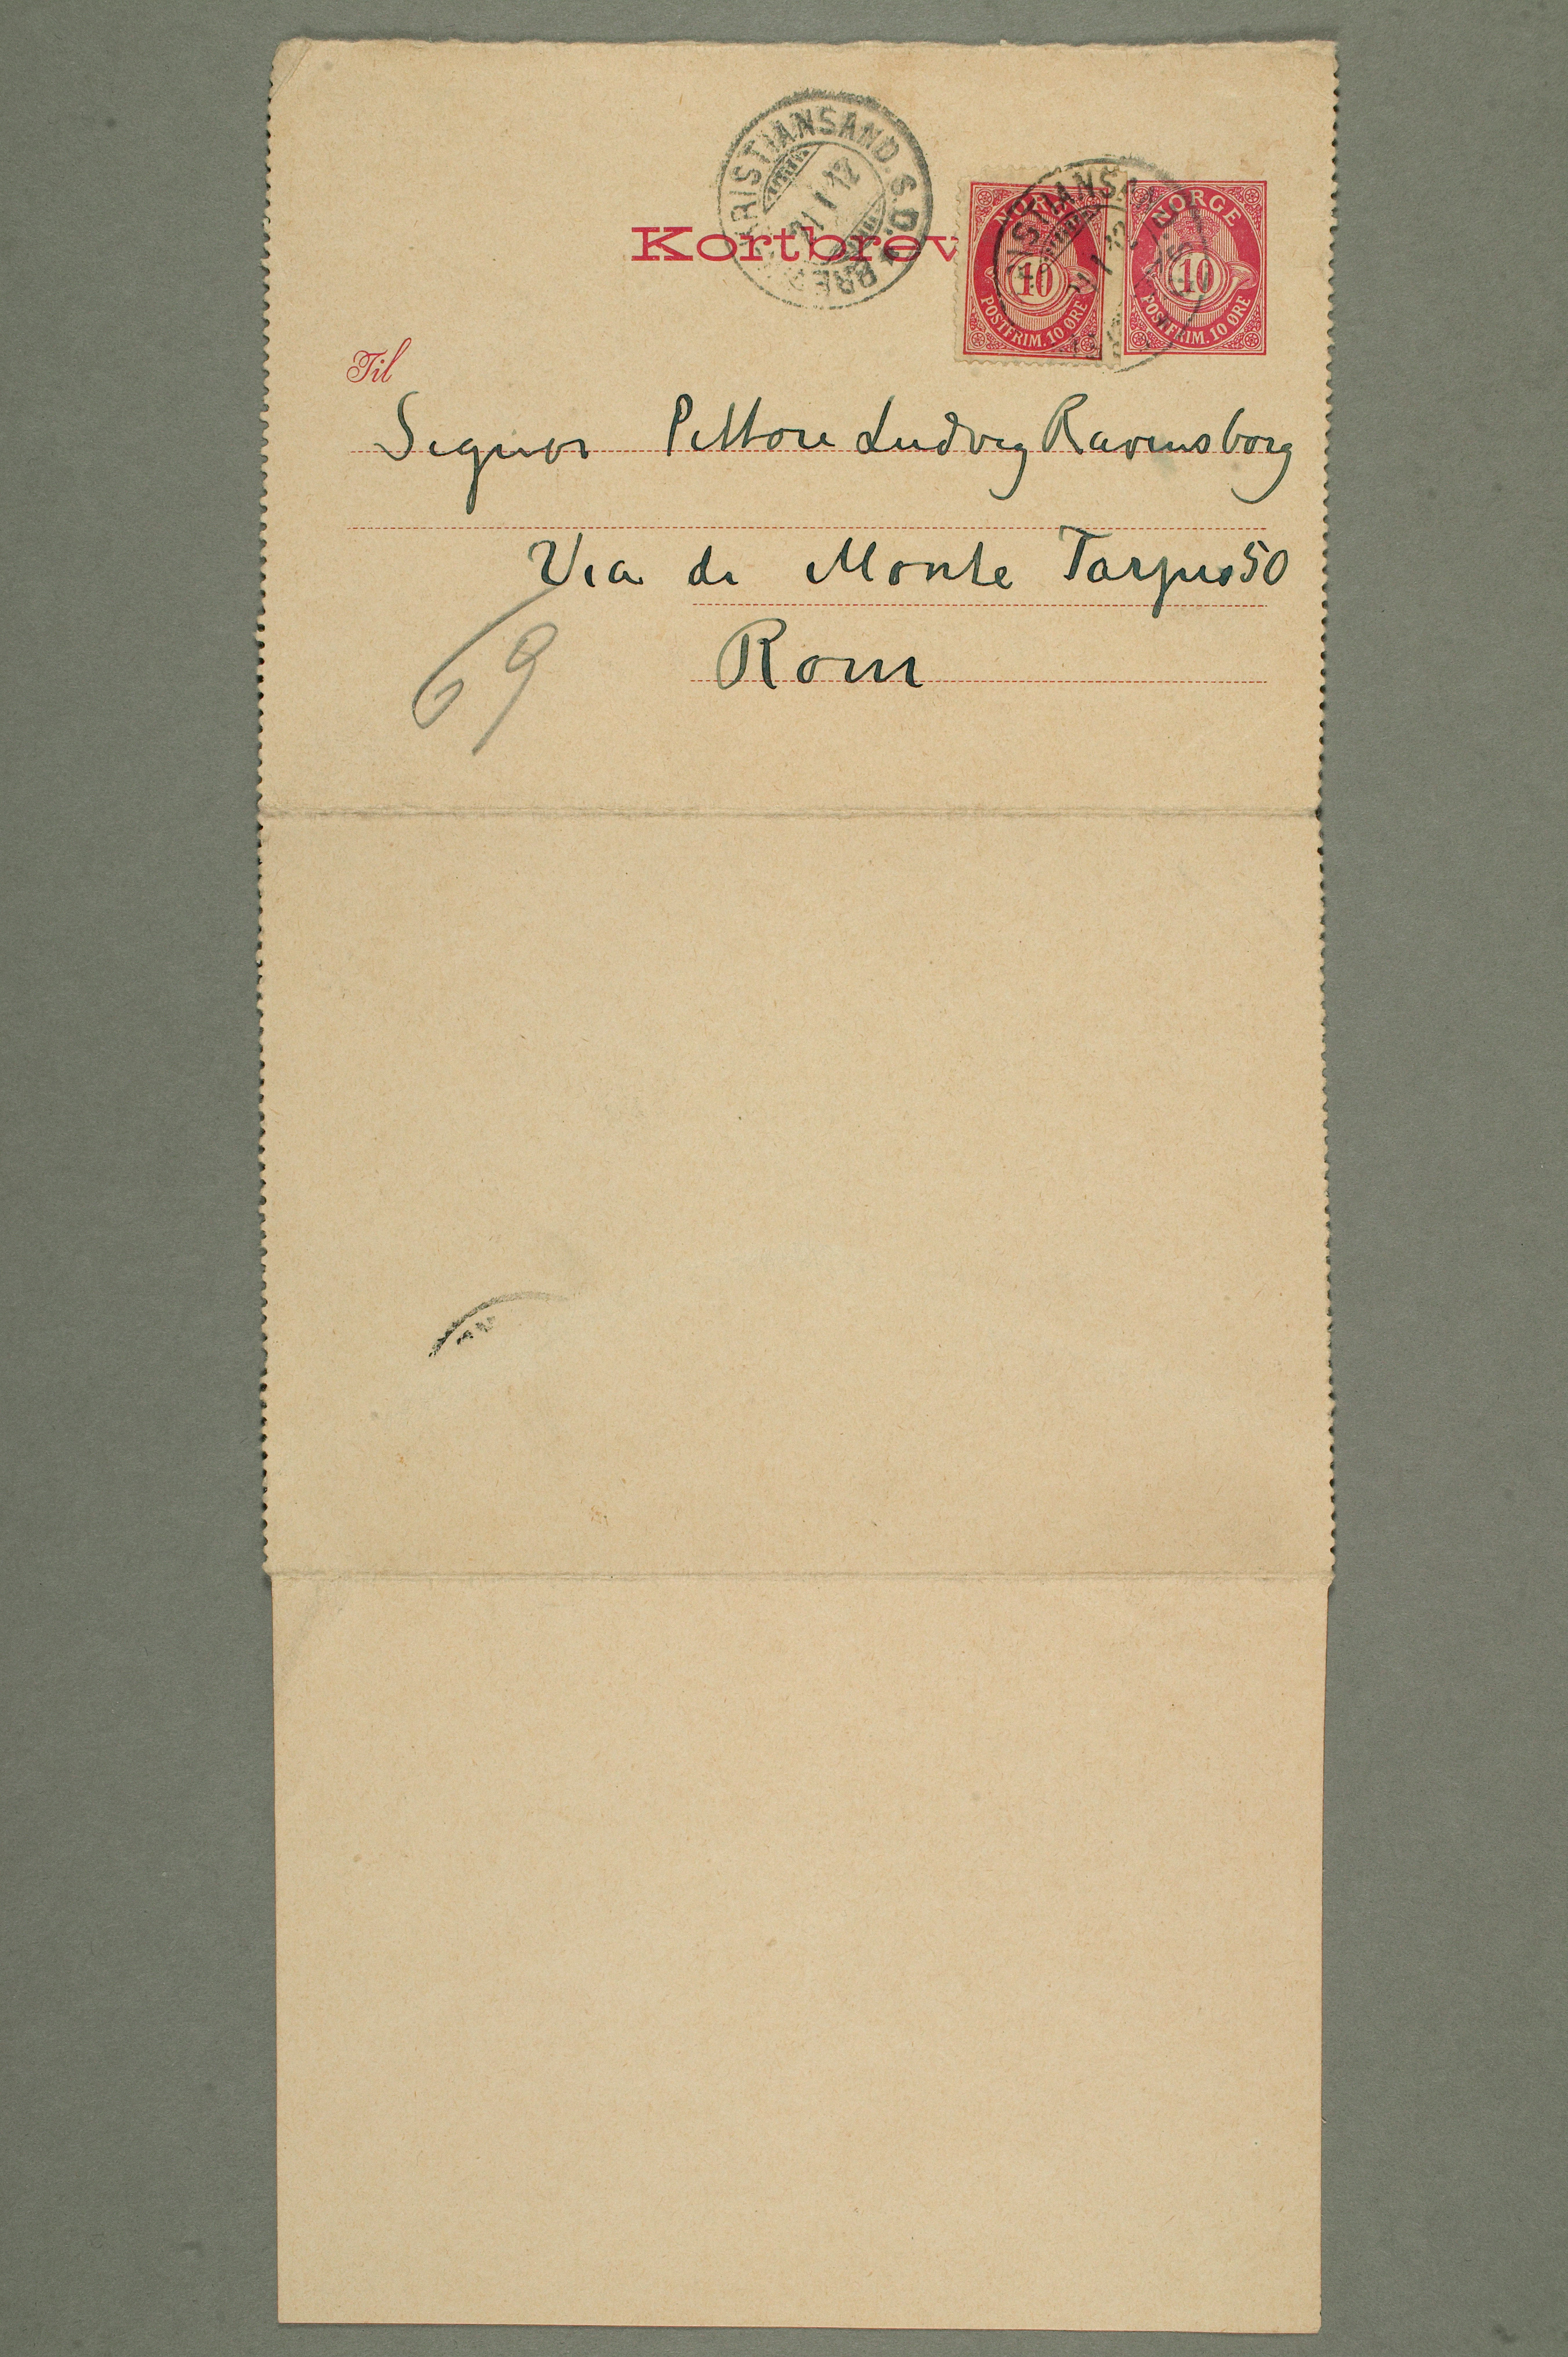 KRISTIANSAND.S.D.
21 I 12
Kortbrev
NORGE
10
POSTFRIM. 10 ØRE
NORGE
10
POSTFRIM. 10 ØRE
Til
Signor Pittore Ludvig Ravensborg
Via di Monte Tarpeo 50
Rom
69